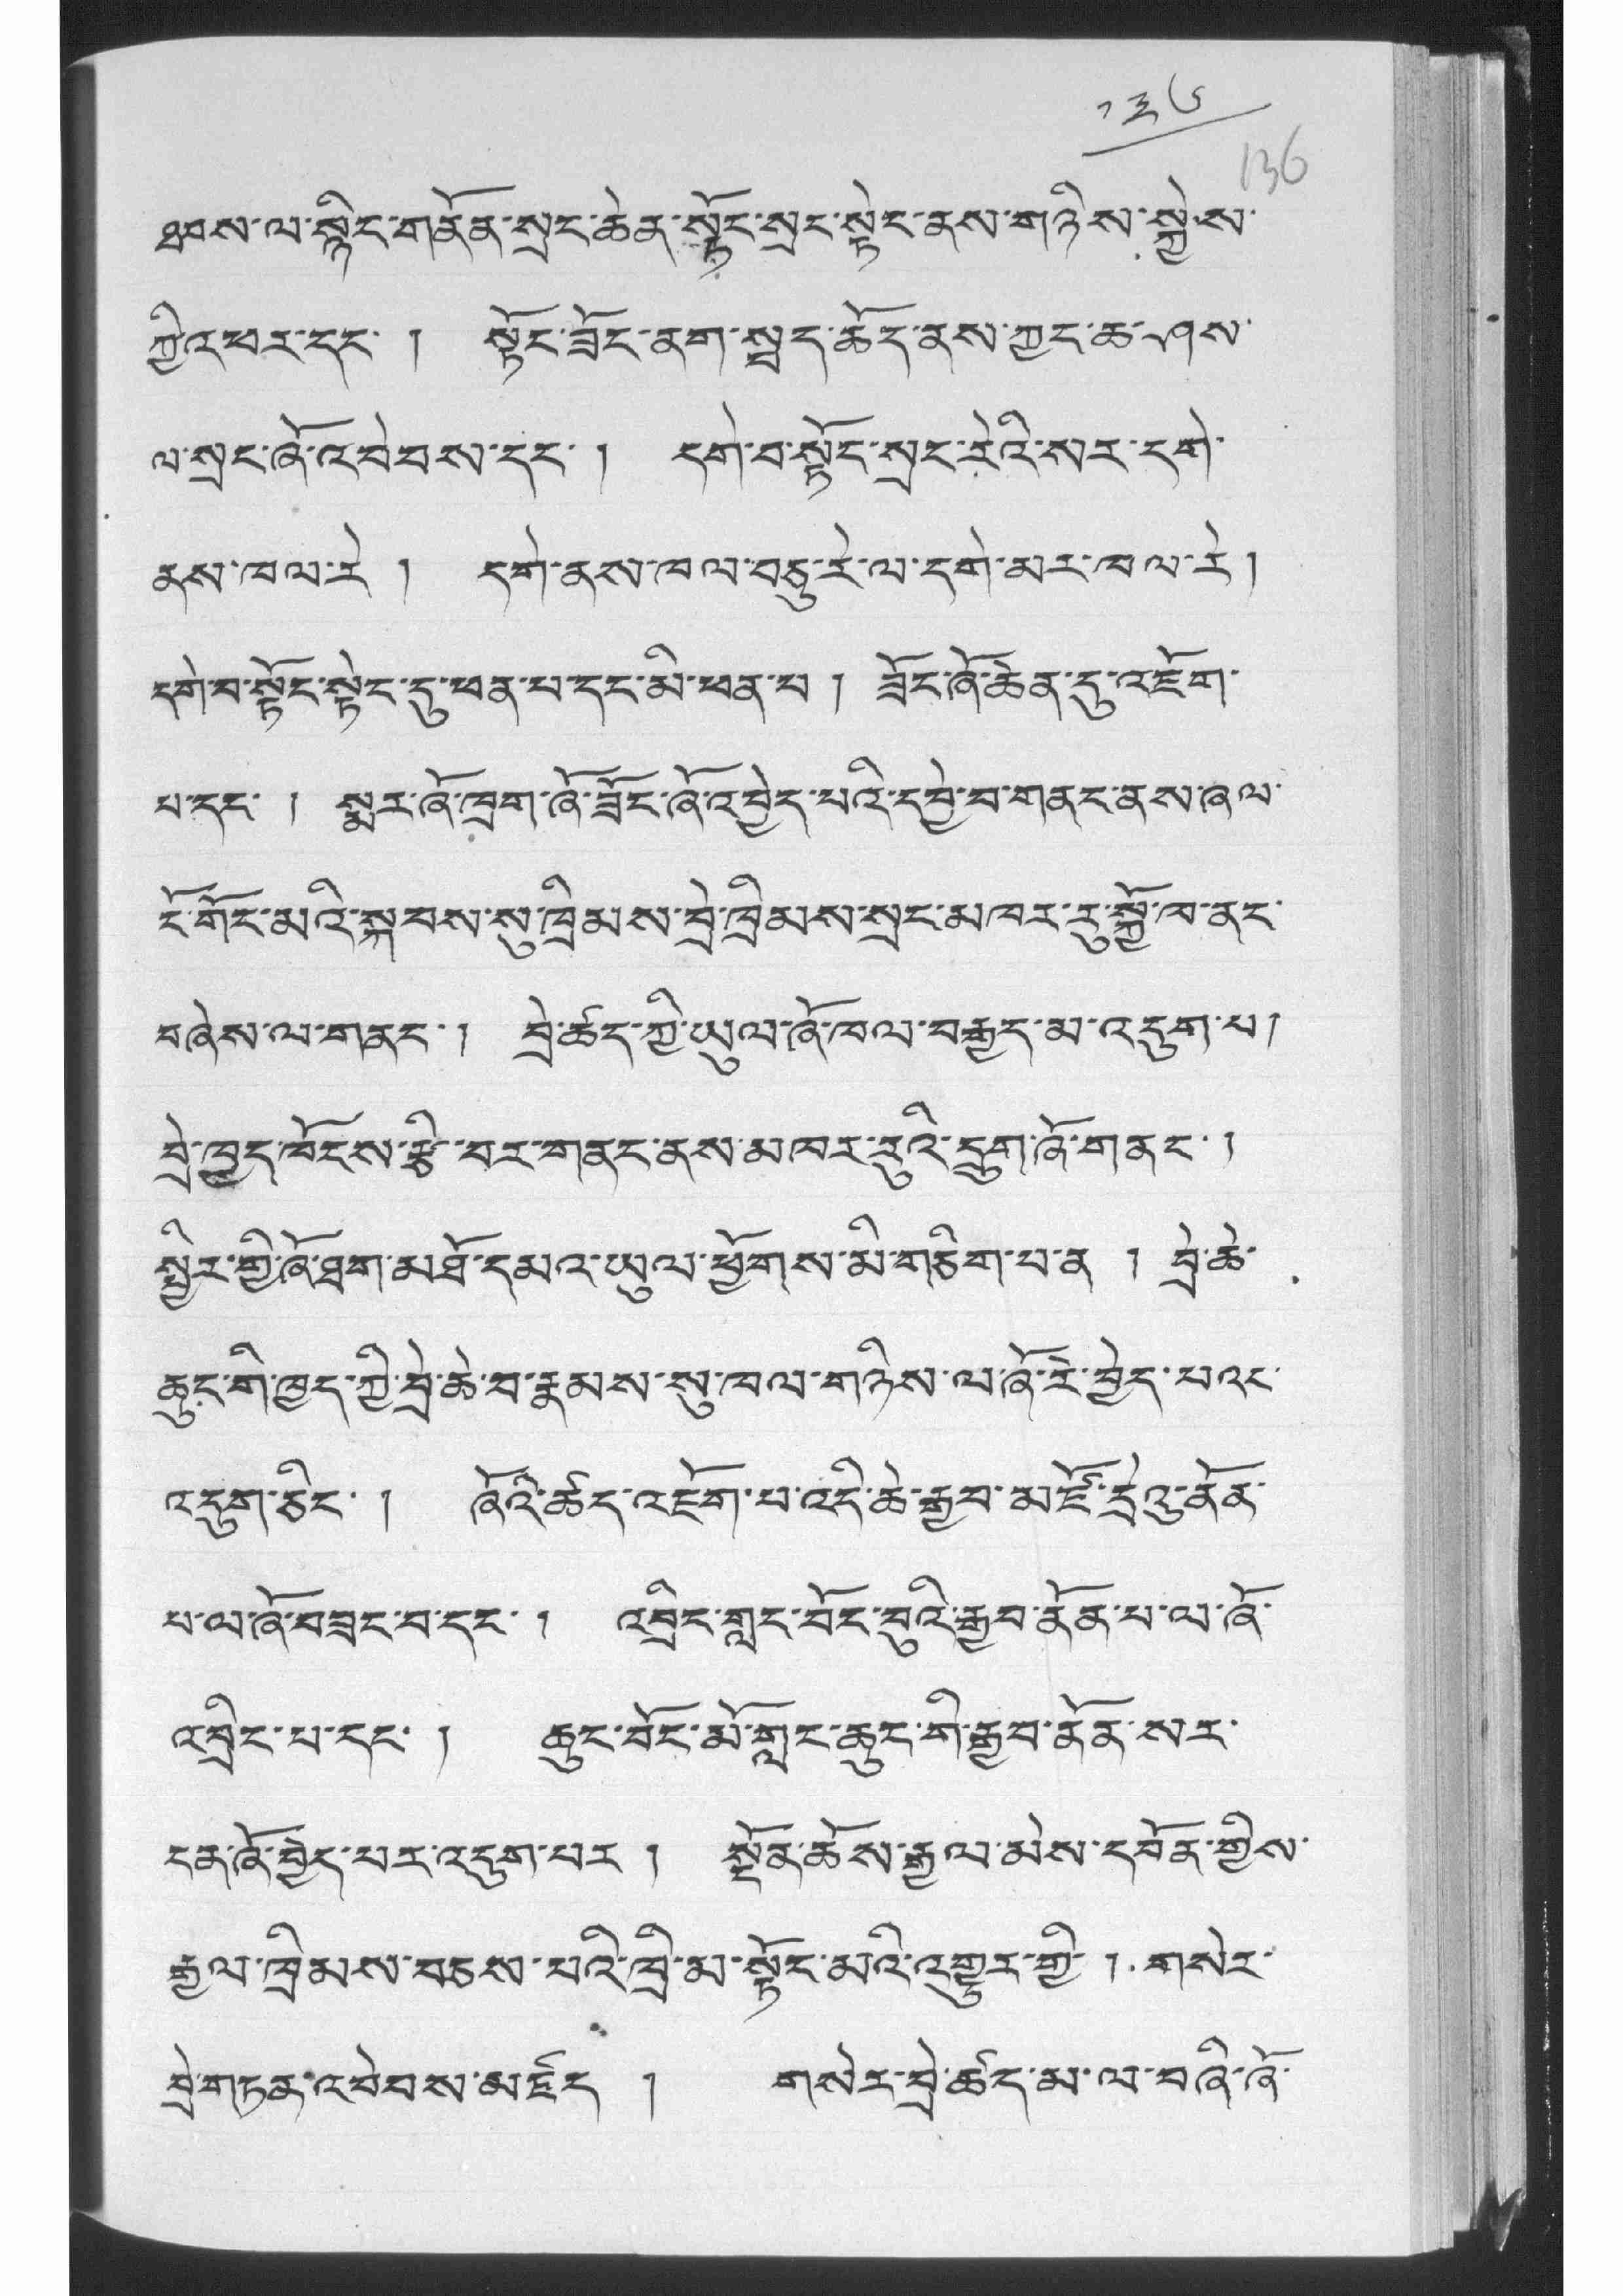 ༡༣༦
136
ཐབས་ལ་སྙིང་གནོན་སྲང་ཆེན་སྟོང་སྲང་སྟེང་ནས་གཉིས་སྐྱེས་
ཀྱི་འཕར་དང་། སྟོང་ཟོང་ནག་སྤྲད་ཚོད་ནས་ཀྱང་ཆ་ཤས་
ལ་སྲང་ཞོ་འབེབས་དང་། དགེ་བ་སྟོད་སྲང་རེའི་སར་དགེ་
ནས་ཁལ་རེ། དགེ་ནས་ཁལ་བཅུ་རེ་ལ་དགེ་མར་ཁལ་རེ།
དགེ་བ་སྟོང་སྟེང་དུ་ཕན་པ་དང་མི་ཕན་པ། ཟོང་ཞོ་ཆེན་དུ་འཇོག་
པ་དང་། སྨར་ཞོ་ཁྲག་ཞོ་ཟོང་ཞོ་འབྱེད་པའི་དབྱེ་བ་གནང་ནས་ཞལ་
ངོ་གོང་མའི་སྐབས་སུ་ཁྲིམས་བྲེ་ཁྲིམས་སྲང་མཁར་རུ་སྐྱོ་ཁ་ནང་
བཞེས་ལ་གནང་། བྲེ་ཚད་ཀྱི་ཡུལ་ཞོ་ཁལ་བརྒྱད་མ་འདུག་པ།
བྲེ་ཁྱད་ཁོངས་རྩི་བར་གནང་ནས་མཁར་རུའི་དྲུག་ཞོ་གནང་།
སྤྱིར་གྱི་ཞོ་ཐག་མཐོ་དམའ་ཡུལ་ཕྱོགས་མི་གཅིག་པ་ན། བྲེ་ཆེ་
ཆུང་གི་ཁྱད་ཀྱི་བྲེ་ཆེ་བ་རྣམས་སུ་ཁལ་གཉིས་ལ་ཞོ་རེ་བྱེད་པའང་
འདུག་ཅིང་། ཞོའི་ཚད་འཇོག་པ་འདི་ཆེ་རྒྱབ་མཛོ་དྲེའུ་ནོན་
པ་ལ་ཞོ་བཟང་བ་དང་། འབྲིང་གླང་བོང་བུའི་རྒྱབ་ནོན་པ་ལ་ཞོ་
འབྲིང་པ་དང་། ཆུང་བོང་མོ་གླང་ཆུང་གི་རྒྱབ་ནོན་སར་
ངན་ཞོ་བྱེད་པར་འདུག་པར། སྔོན་ཆོས་རྒྱལ་མེས་དབོན་གྱིས་
རྒྱལ་ཁྲིམས་བཅས་པའི་ཁྲི་མ་སྟོང་མའི་འགྱུར་གྱི། གསེར་
བྲེ་གཏན་འབེབས་མཛད། གསེར་བྲེ་ཚད་མ་ལ་བཞི་ཞོ་